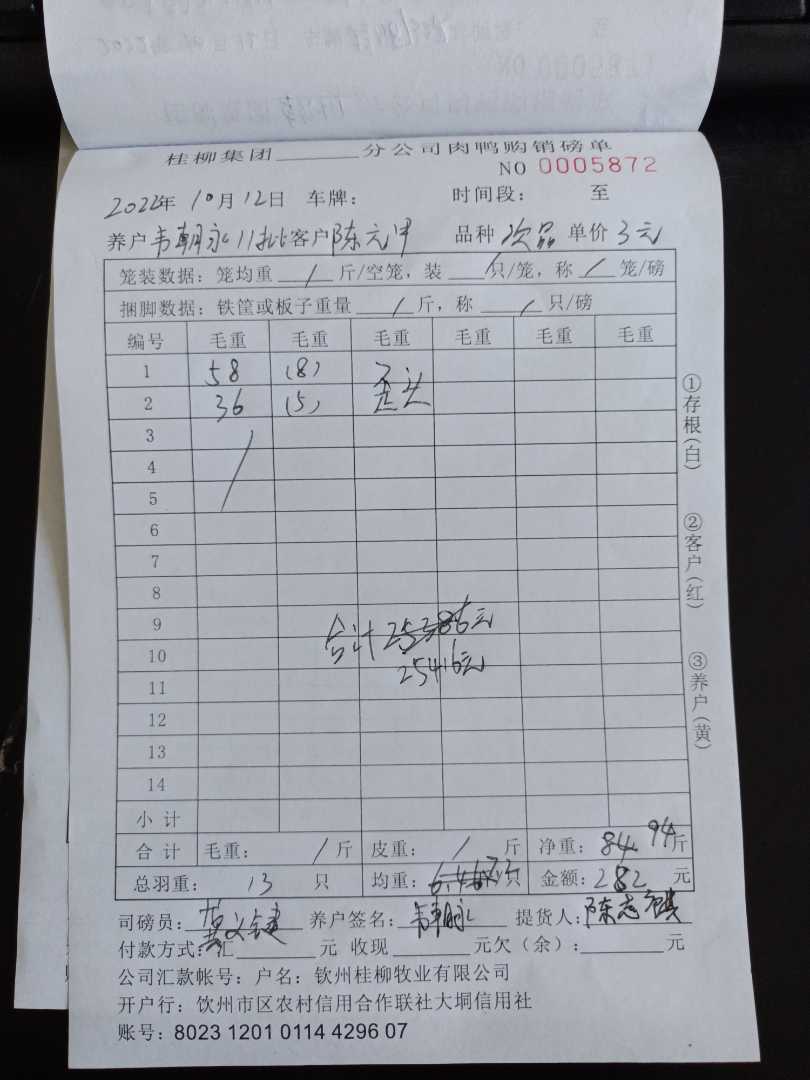 桂柳集团______分公司肉鸭购销磅单
NO 0005872
2022年10月12日 车牌: 时间段: 至
养户韦朝永11批客户陈元甲 品种 次品 单价3元
笼装数据:笼均重 / 斤/空笼,装 / 只/笼,称 / 笼/磅
捆脚数据:铁筐或板子重量 / 斤,称 / 只/磅
编号 毛重 毛重 毛重 毛重 毛重 毛重
1 58 (8) 歪头
2 36 (5)
3 /
4
5
6
7
8
9 合计 元
10 25416元
11
12
13
14
小计
合计 毛重: / 斤 皮重: / 斤 净重: 94斤
总羽重: 13 只 均重: 只 金额:282 元
司磅员: 养户签名:韦朝永 提货人:陈志
付款方式:汇______元 收现______元欠(余):______元
公司汇款帐号:户名:钦州桂柳牧业有限公司
开户行:饮州市区农村信用合作联社大垌信用社
账号:8023 1201 0114 4296 07
①存根(白)
②客户(红)
③养户(黄)